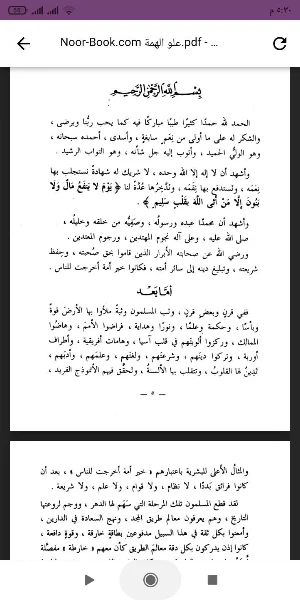 ٥:٣٠ م
55
Noor-Book.com علو الهمة.pdf - ...
بسم الله الرحمن الرحيم
الحمد لله حمدًا كثيرًا طيبًا مباركًا فيه كما يحب ربُّنا ويرضى ،
والشكر له على ما أولى من نِعَمٍ سابغةٍ ، وأسدى ، أحمده سبحانه ،
وهو الوليُّ الحميد ، وأتوب إليه جل شأنه ، وهو التواب الرشيد .
وأشهد أن لا إله إلا الله وحده ، لا شريك له شهادةً نستجلب بها
نِعَمَه ، ونستدفع بها نِقَمَه ، وندَّخِرُها عُدَّةً لنا ﴿ يَوْمَ لا يَنفَعُ مَالٌ وَلَا
بَنُونَ إِلَّا مَنْ أَتَى اللَّهَ بِقَلْبٍ سَلِيمٍ ﴾ .
وأشهد أن محمدًا عبده ورسولُه ، وصفِيُّه من خلقه وخليلُه ،
صلى الله عليه ، وعلى آله نجوم المهتدين ، ورجوم المعتدين .
ورضي الله عن صحابته الأبرار الذين قاموا بحق صُحبته ، وحِفظ
شريعته ، وتبليغ دينه إلى سائر أمته ، فكانوا خير أمة أخرجت للناس .
أما بعد
ففي قرنٍ وبعض قرنٍ ، وثب المسلمون وثبةً ملأوا بها الأرضَ قوةً
وبأسًا ، وحكمة وعلمًا ، ونورًا وهداية ، فراضوا الأممَ ، وهاضُوا
الممالك ، وركزوا ألويتهم في قلب آسيا ، وهامات أفريقية ، وأطراف
أوربة ، وتركوا دينَهم ، وشرعتَهم ، ولغتَهم ، وعلمَهم ، وأدبَهم ،
تَدِينُ لها القلوبُ ، وتتقلب بها الألسنةُ ، ولتحقَّق فيهم الأنموذج الفريد ،
— ٥ —
والمثالُ الأعلى للبشرية باعتبارهم « خير أمة أخرجت للناس » ، بعد أن
كانوا فرائق بَدَدًا ، لا نظام ، ولا قِوام ، ولا علم ، ولا شريعة .
لقد قطع المسلمون تلك المرحلة التي سَهَم لها الدهر ، ووجم لروعتها
التاريخ ، وهم يعرفون معالم طريق المجد ، ونهج السعادة في الدارين ،
وأمضوا بكل ثقة في هذا السبيل مدفوعين بطاقةٍ خارقة ، وقوةٍ دافعة ،
كانوا إذن يدركون بكل دقة معالمَ الطريق كأن معهم « خارطة » مفصَّلة